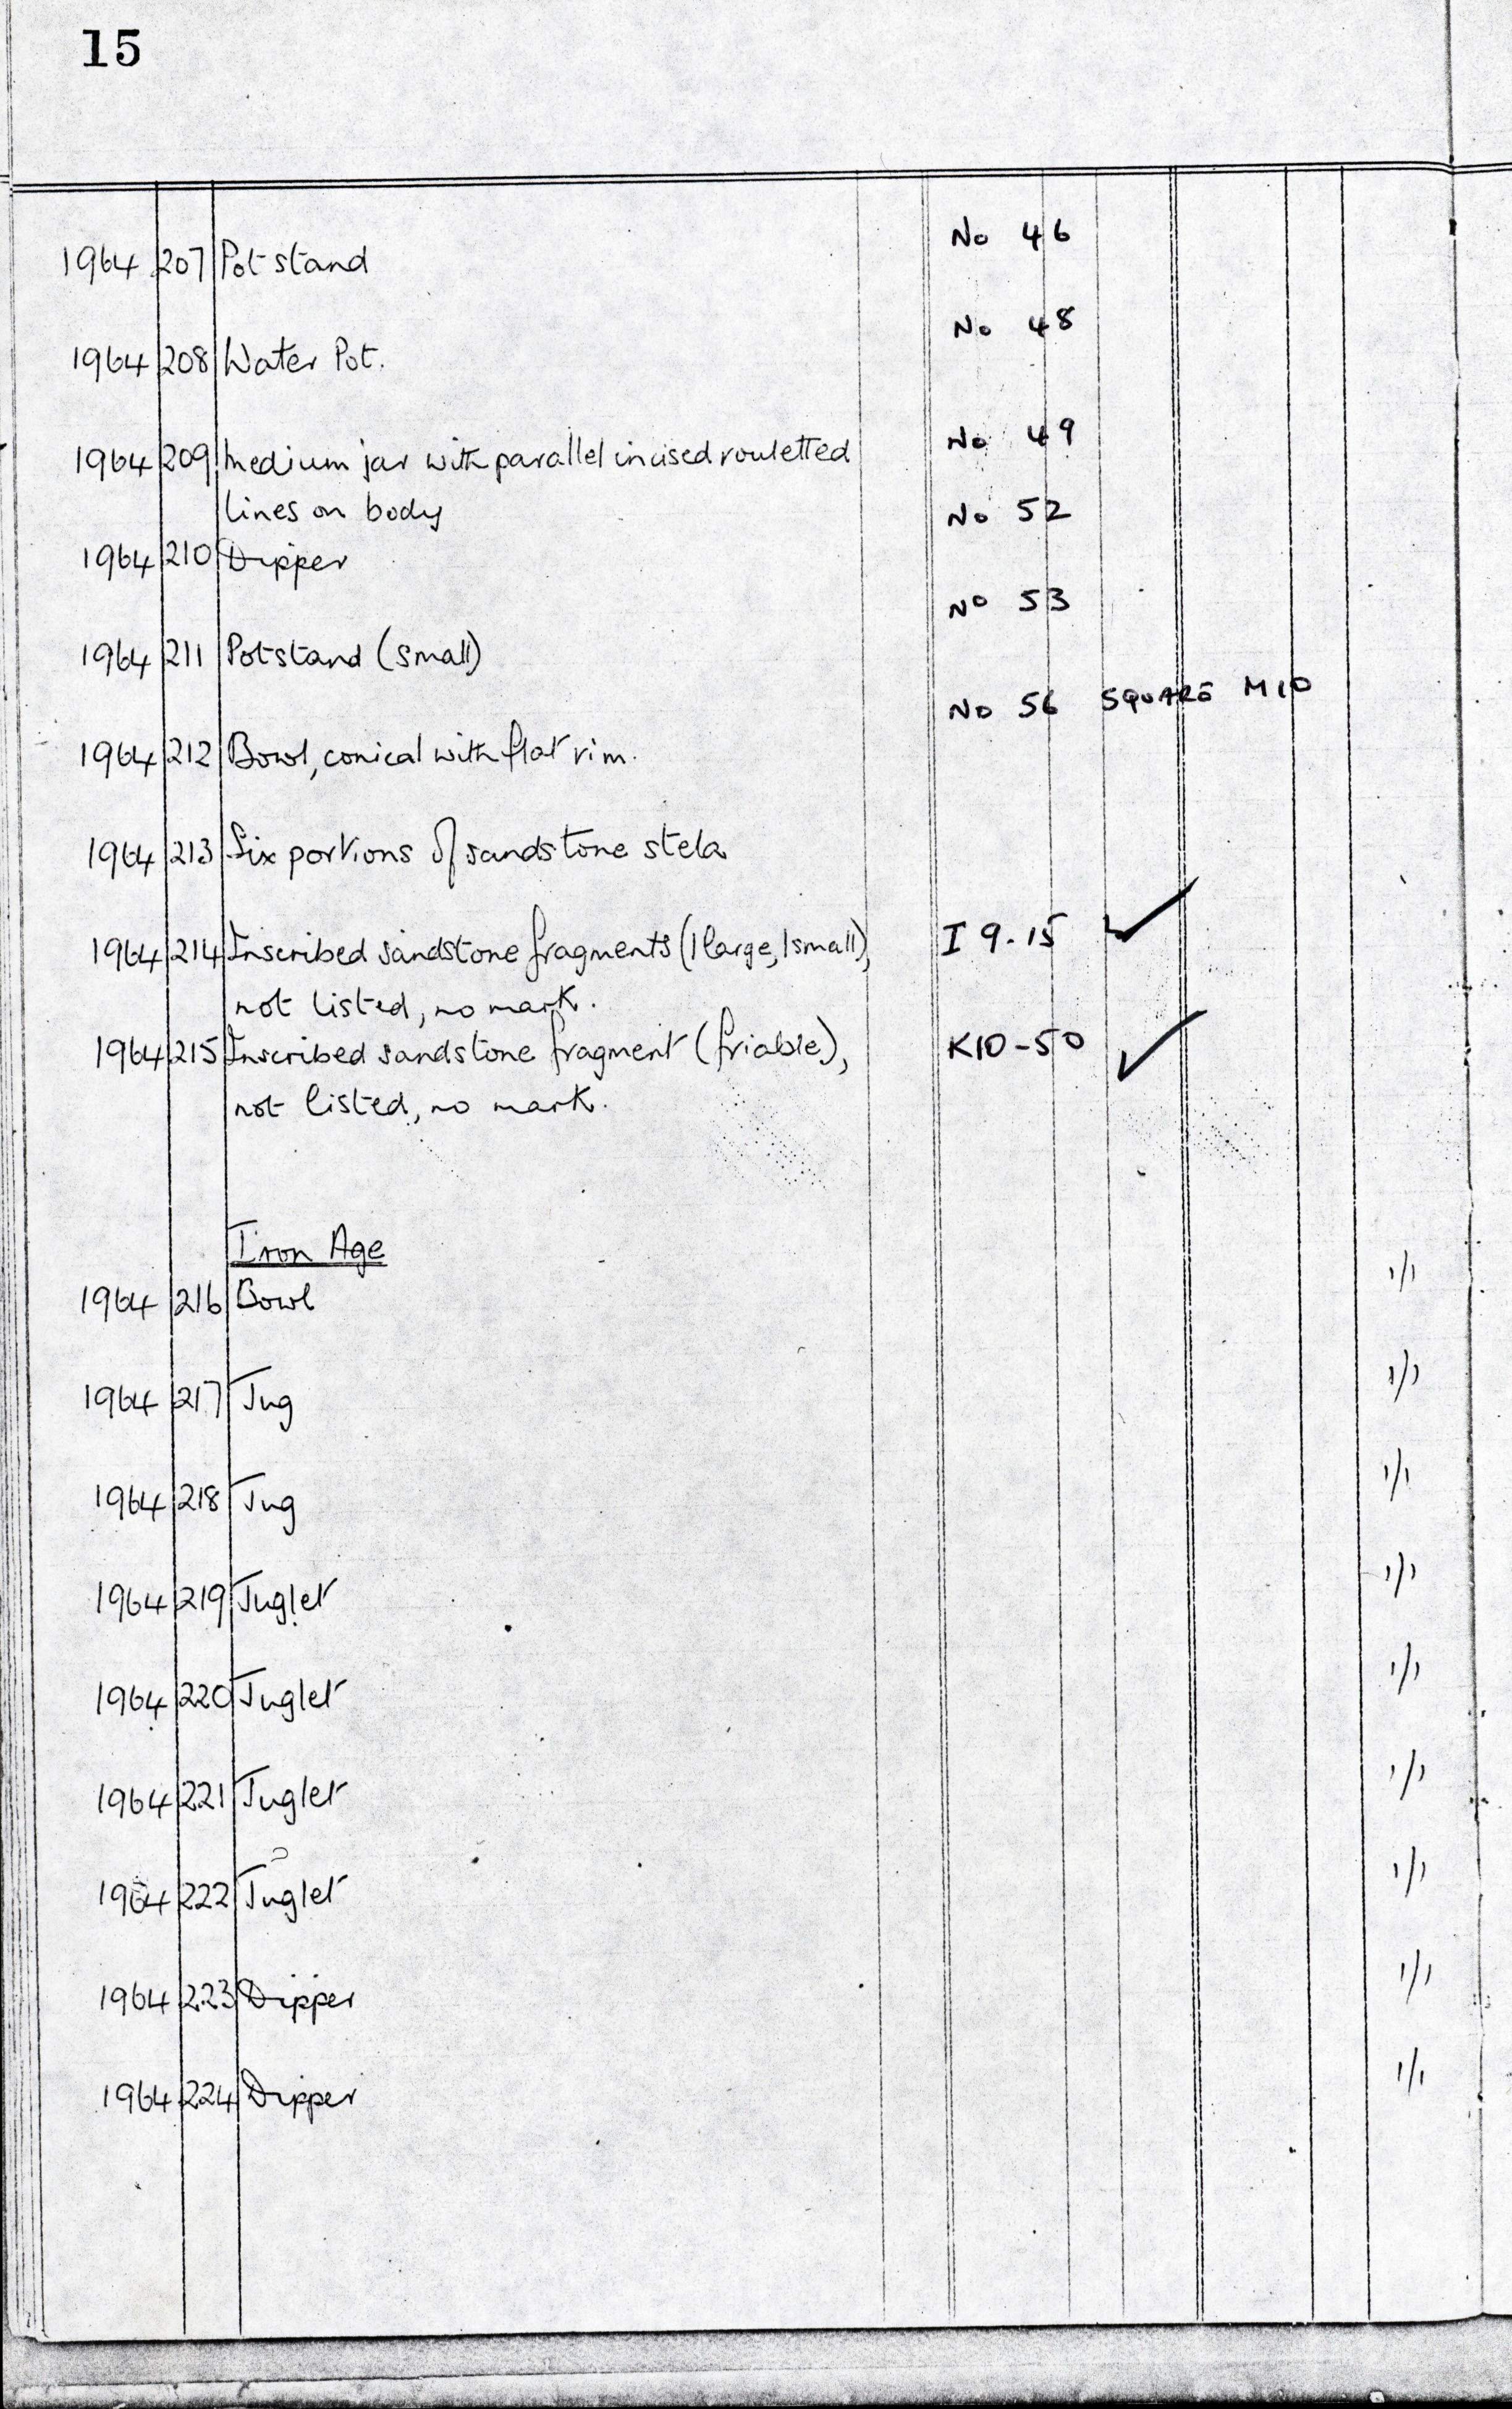 15
1964 207 Pot stand No 46
1964 208 Water Pot. No 48
1964 209 Medium jar with parallel incised rouletted No 49
lines on body
1964 210 Dipper No 52
1964 211 Potstand (small) No 53
1964 212 Bowl, conical with flat rim. No 56 SQUARE M10
1964 213 Six portions of sandstone stela
1964 214 Inscribed sandstone fragments (1 large, 1 small), I 9-15 ✓
not listed, no mark.
1964 215 Inscribed sandstone fragment (friable), K10-50 ✓
not listed, no mark.
Iron Age
1964 216 Bowl 1/1
1964 217 Jug 1/1
1964 218 Jug 1/1
1964 219 Juglet 1/1
1964 220 Juglet 1/1
1964 221 Juglet 1/1
1964 222 Juglet 1/1
1964 223 Dipper 1/1
1964 224 Dipper 1/1